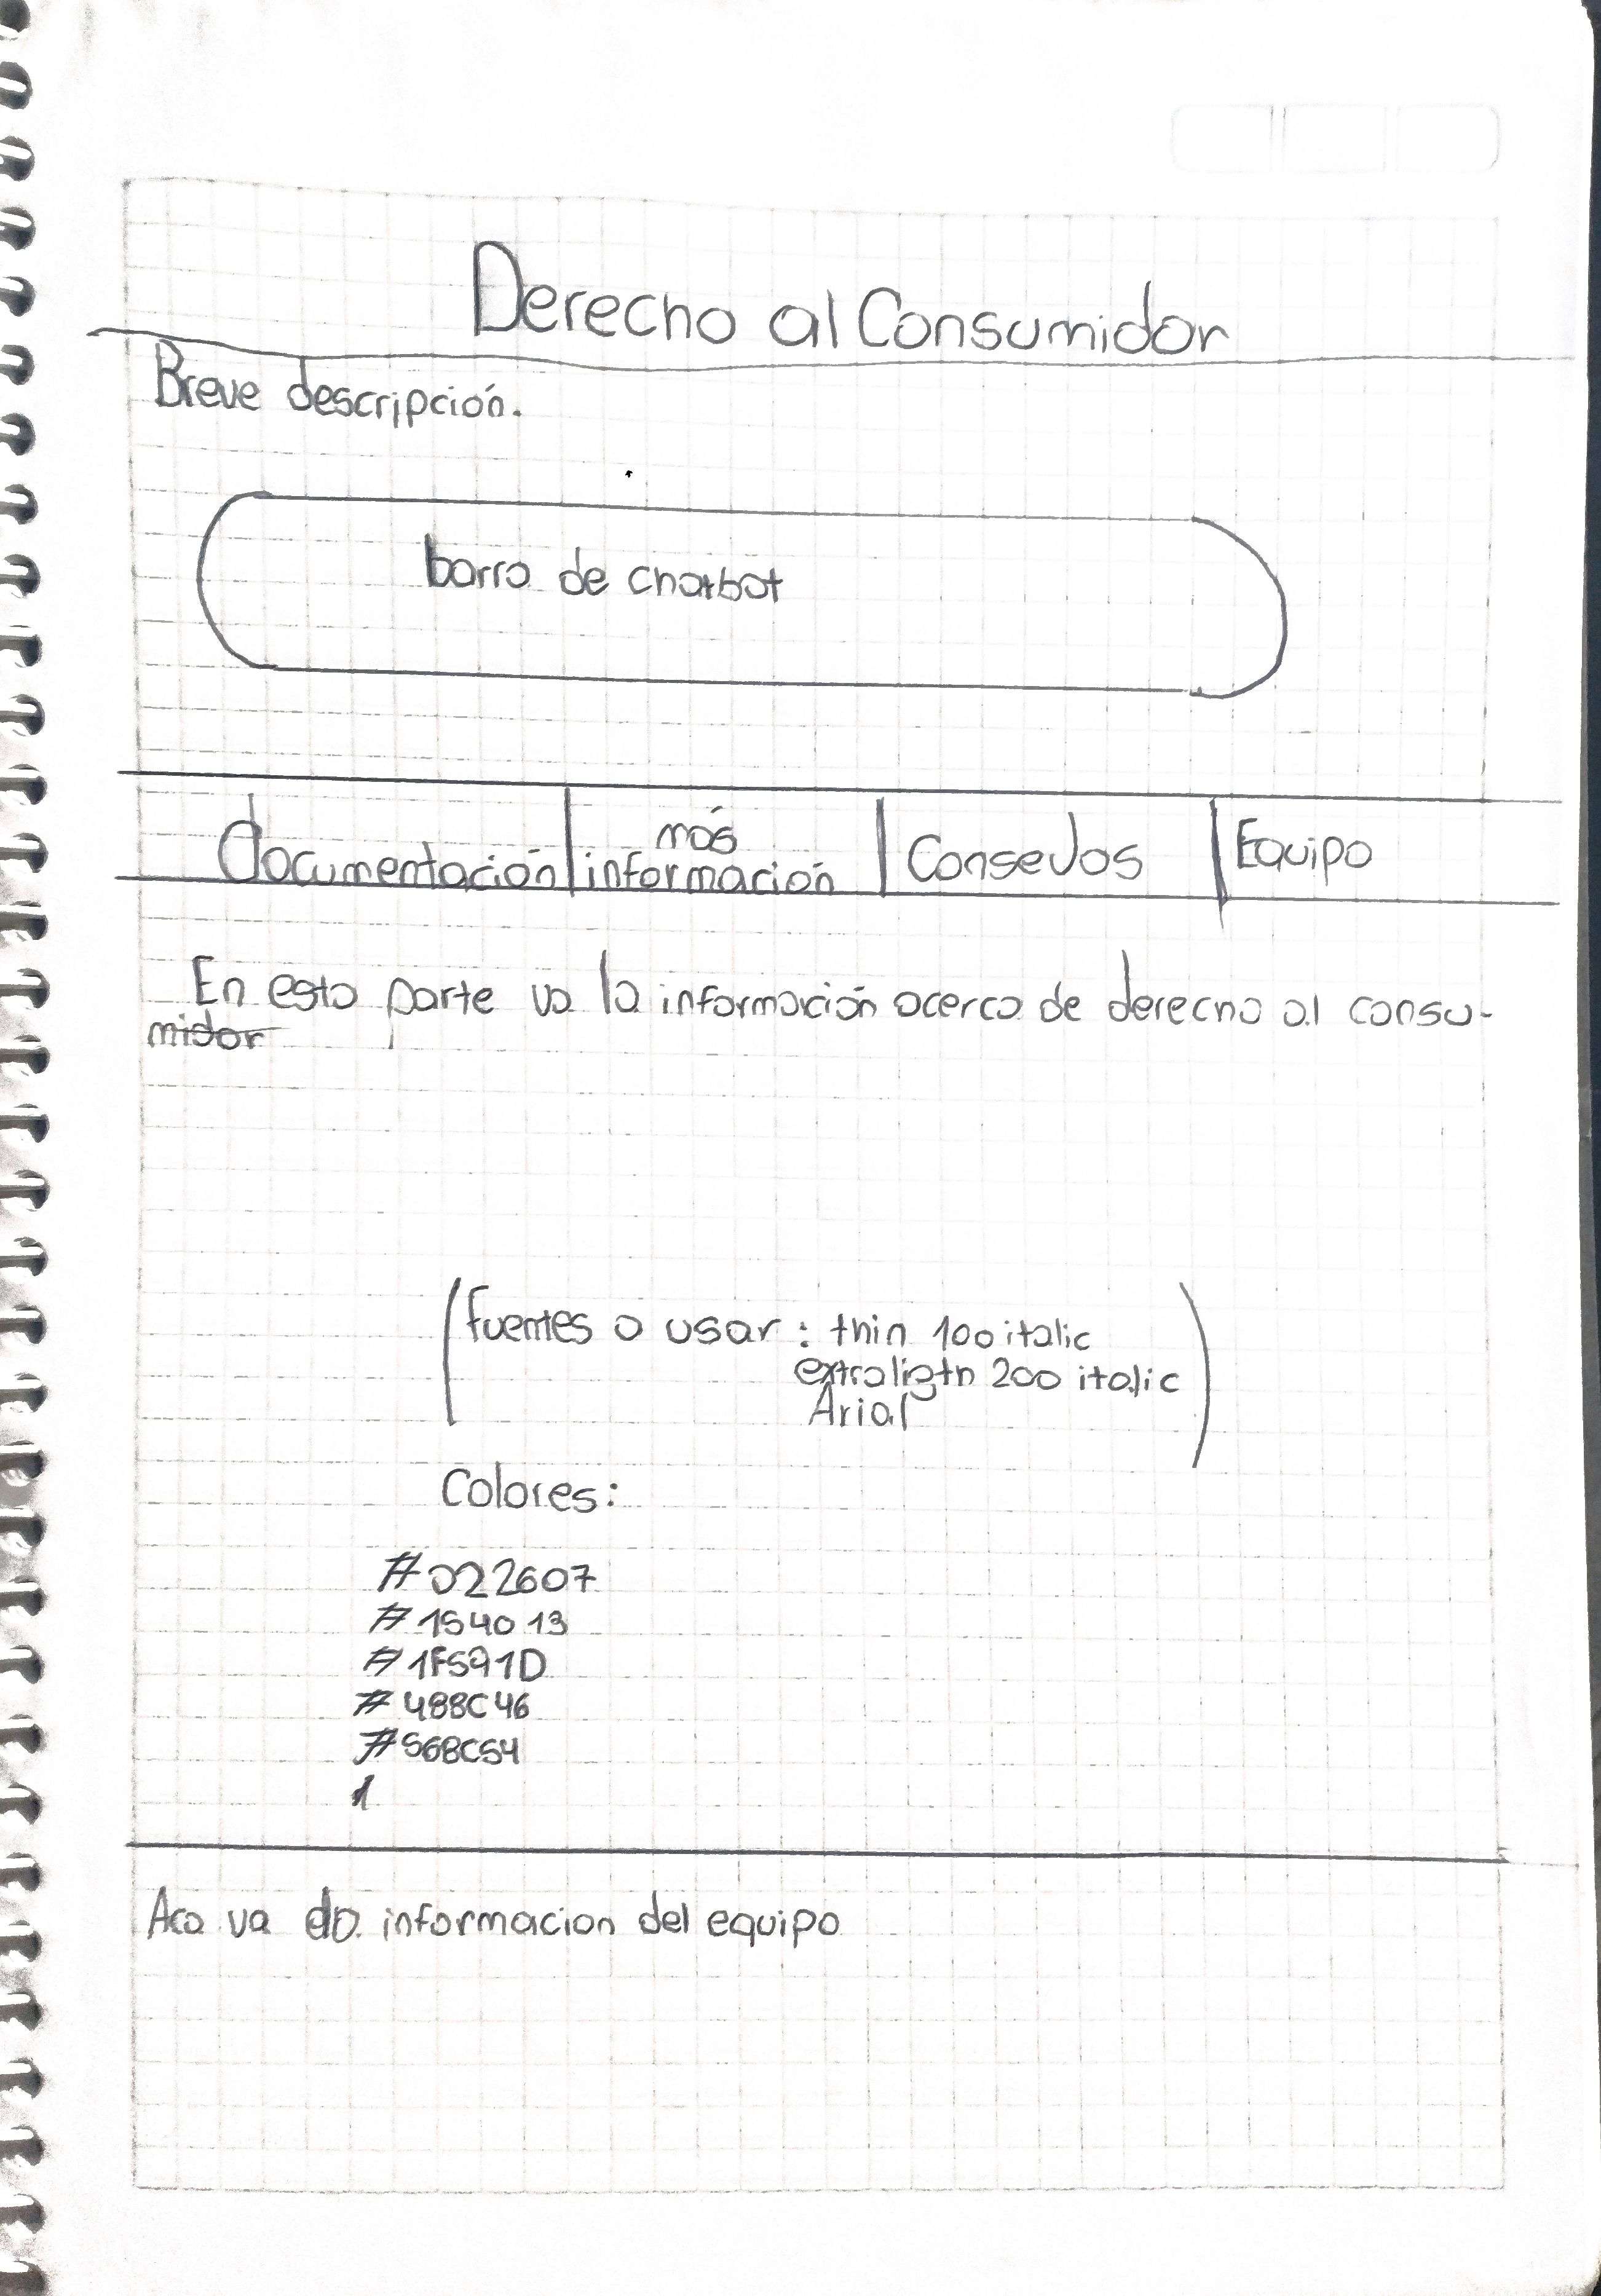 Derecho al Consumidor
Breve descripción.
barra de chatbot
documentación
más
información
Consejos
Equipo
En esta parte va la información acerca de derecho al consu-
midor
fuentes a usar: thin 100 italic
extraligth 200 italic
Arial
Colores:
#022607
#154013
#1F591D
#488C46
#568C54
Aca va la informacion del equipo